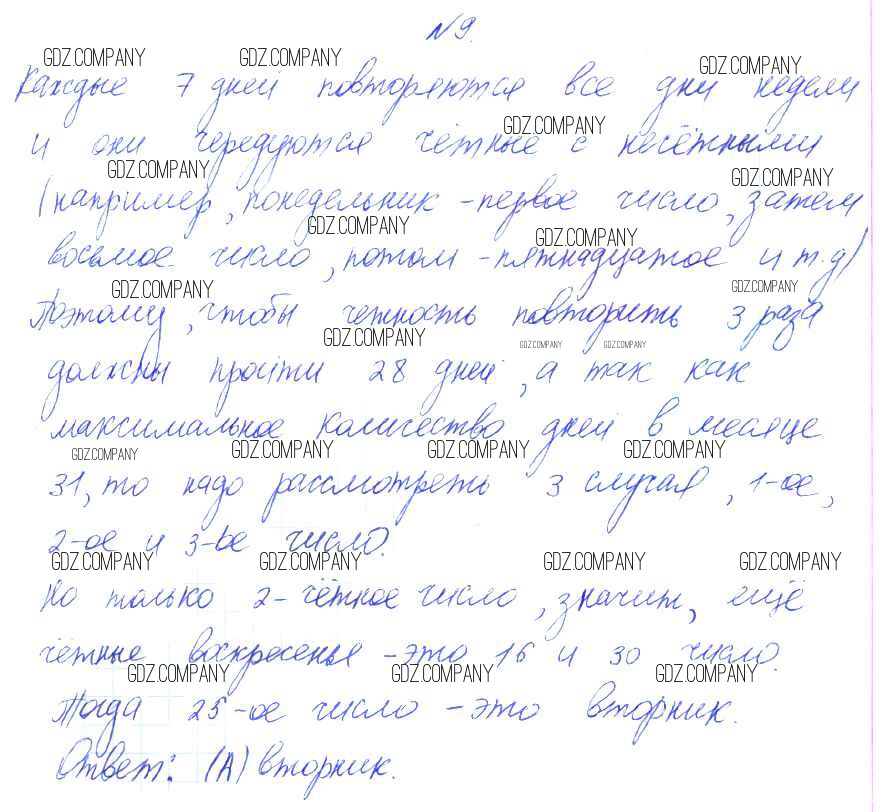 №9.
GDZ.COMPANY GDZ.COMPANY GDZ.COMPANY
Каждые 7 дней повторяются все дни недели
GDZ.COMPANY
и они чередуются чётные с нечётными
GDZ.COMPANY GDZ.COMPANY
(например, понедельник - первое число, затем
GDZ.COMPANY GDZ.COMPANY
восьмое число, потом - пятнадцатое и т.д)
GDZ.COMPANY GDZ.COMPANY
Поэтому, чтобы четность повторить 3 раза
GDZ.COMPANY GDZ.COMPANY GDZ.COMPANY
должны пройти 28 дней, а так как
максимальное количество дней в месяце
GDZ.COMPANY GDZ.COMPANY GDZ.COMPANY GDZ.COMPANY
31, то надо рассмотреть 3 случая, 1-ое,
2-ое и 3-ье число.
GDZ.COMPANY GDZ.COMPANY GDZ.COMPANY GDZ.COMPANY
Но только 2 - чётное число, значит, ещё
чётные воскресенья - это 16 и 30 число.
GDZ.COMPANY GDZ.COMPANY GDZ.COMPANY
Тогда 25-ое число - это вторник.
Ответ: (А) вторник.